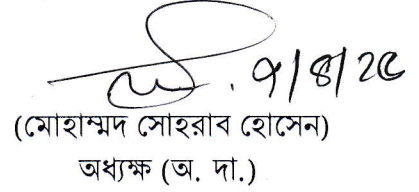 ৭/৪/২৫
(মোহাম্মদ সোহরাব হোসেন)
অধ্যক্ষ (অ. দা.)